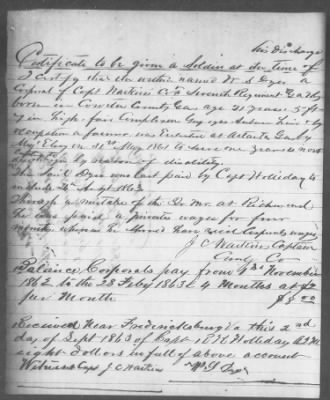 his Discharge
Certificate to be given a Soldier at the time of
I certify that the within named W S Dyer a
Corporal of Capt Watkins Co Seventh Regiment Ga Vols
born in Coweta County Ga age 21 years 5 ft
high fair Complexion Gray eyes Auburn Hair & by
occupation a farmer was Enlisted at Atlanta Ga by
on 31st May 1861 to serve one year & is now
discharged by reason of disability.
The said Dyer was last paid by Capt Holliday to
include 31st August 1863
Through a mistake of the Qr Mr. at Richmond
he was paid a privates wages for four
months whereas he should have recd Corporals wages
J C Watkins Captain
Comdg Co
Balance Corporals pay from 1st November
1862 to the 28 Feby 1863 - 4 Months at $2
per Month $8.00
Received Near Fredericksburg Va this 2nd
day of Sept 1863 of Capt Holliday AQM
eight Dollars in full of above account
Witness Capt J C Watkins W S Dyer